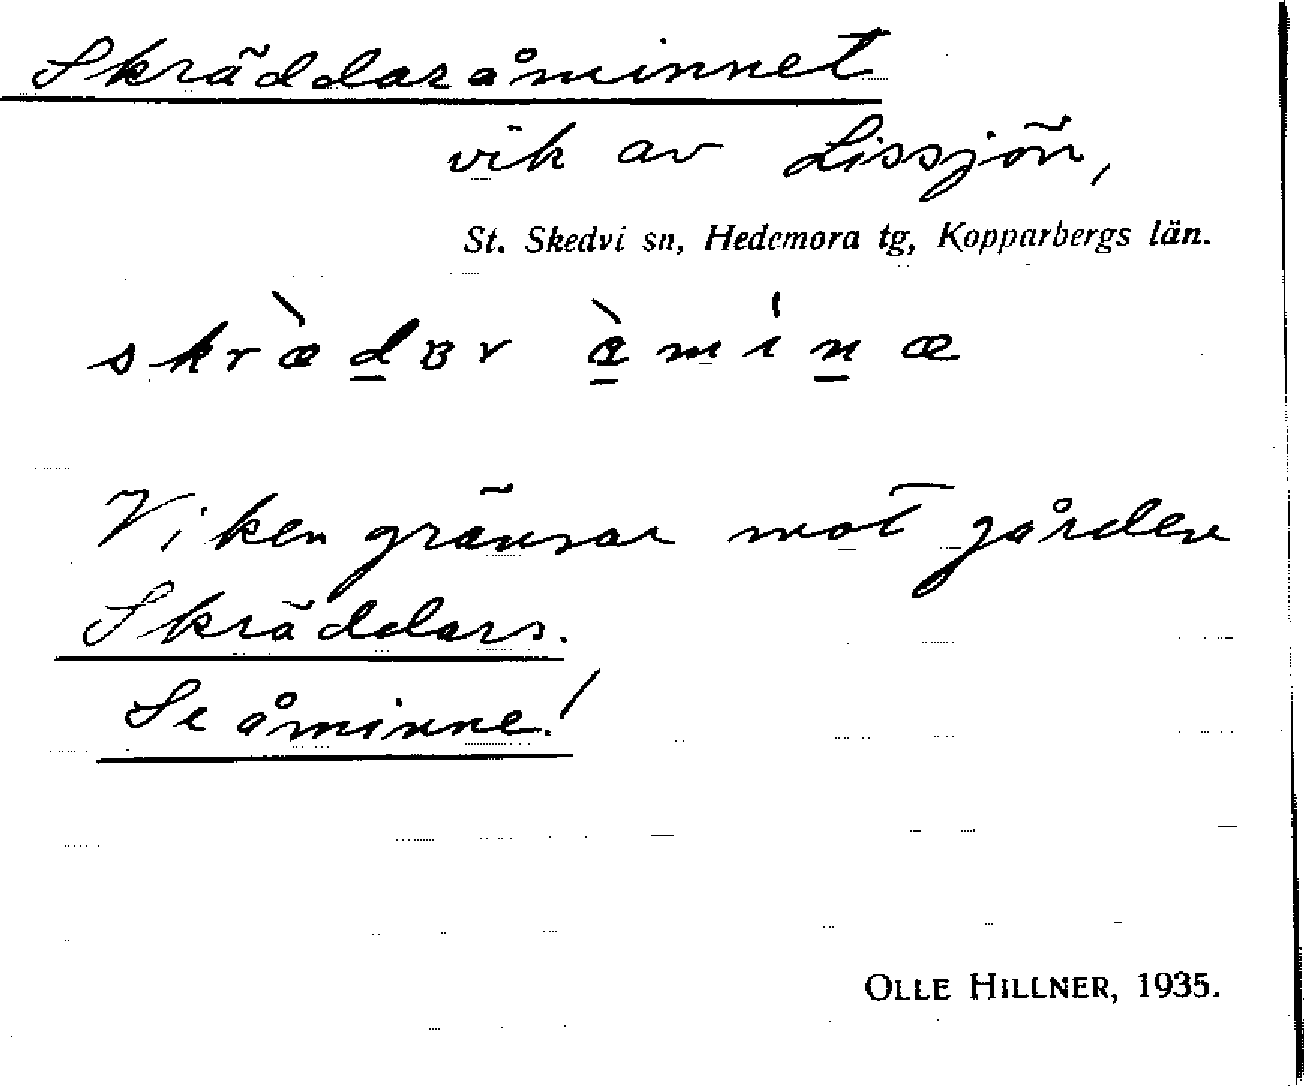 Skräddaråminnet
vik av Lissjön,
St. Skedvi sn, Hedemora tg, Kopparbergs län.
Viken gränsar mot gården
Skräddars.
Se åminne!
OLLE HILLNER, 1935.